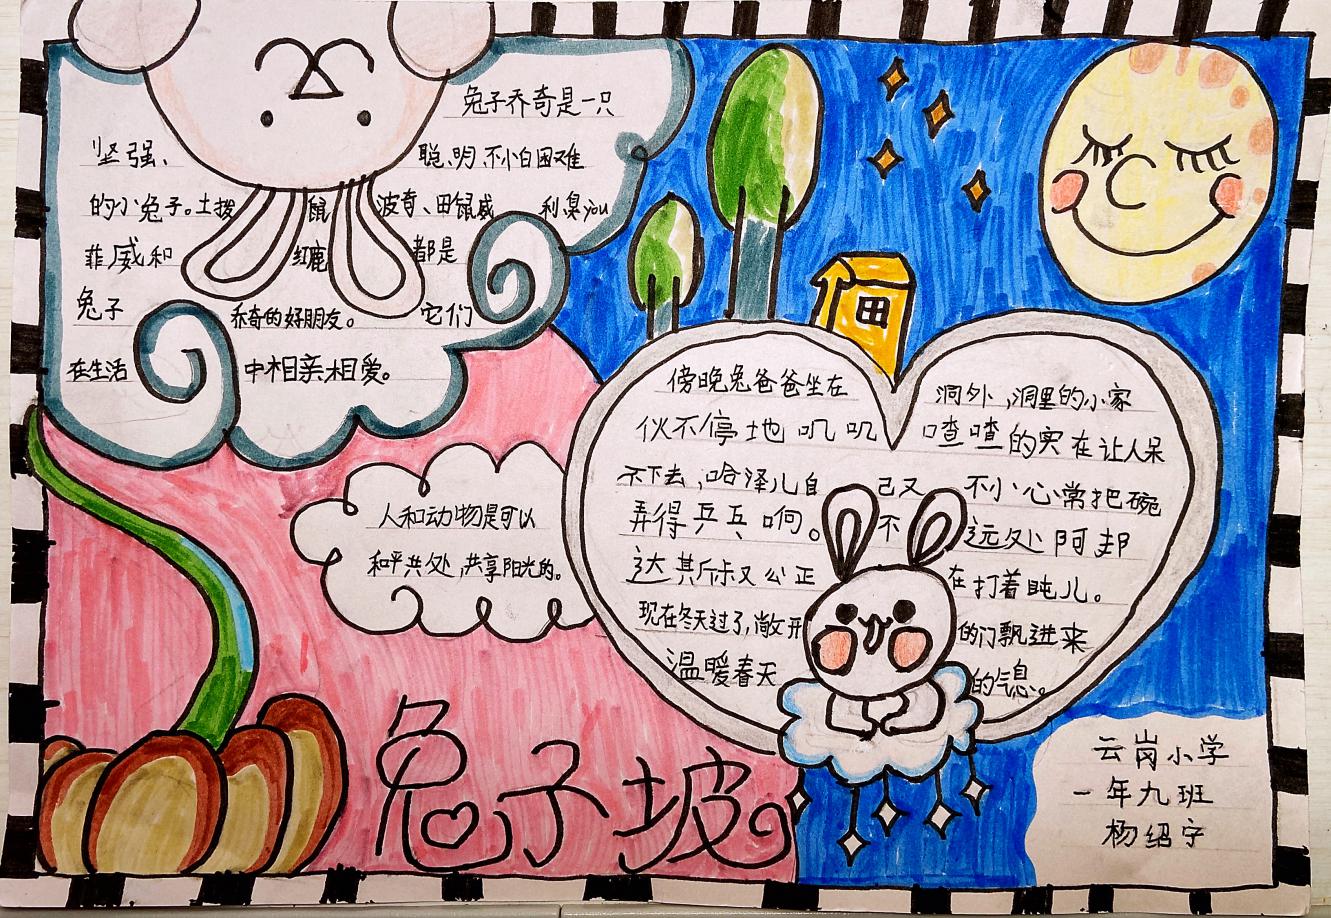 兔子乔奇是一只
坚强、聪、明、不小白困难
的小兔子。土拨鼠波奇、田鼠威利臭you
菲威和红鹿都是
兔子乔奇的好朋友。它们
在生活中相亲相爱。
人和动物是可以
和平共处,共享阳光的。
傍晚兔爸爸坐在洞外,洞里的小家
伙不停地叽叽喳喳的实在让人呆
不下去,哈泽儿自己又不小心常把碗
弄得乒乓响。不远处阿邦
达斯又公正在打着盹儿。
现在冬天过了,敞开的门飘进来
温暖春天的气息。
兔子坡
云岗小学
一年九班
杨绍宁